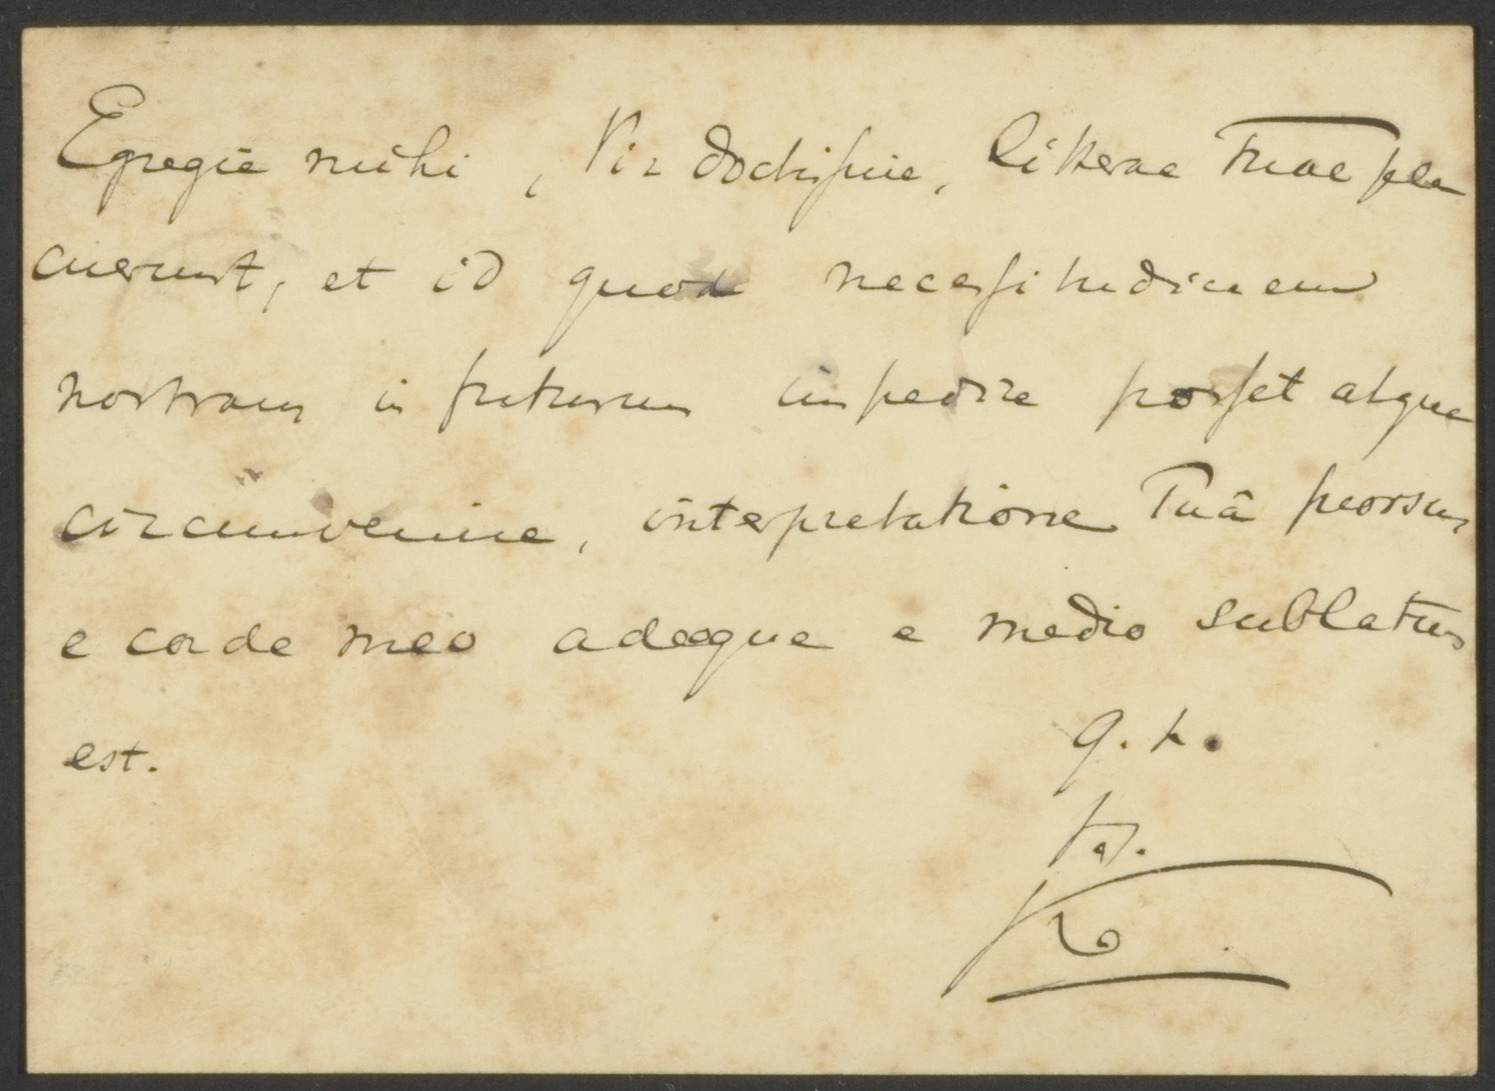 Egregie mihi, Vir doctissime, litterae Tuae pla
cuerunt, et id quod necessitudinem
nostram in futurum impedire posset atque
circumvenire, interpretatione Tuâ prorsus
e corde meo adeoque e medio sublatum
est.